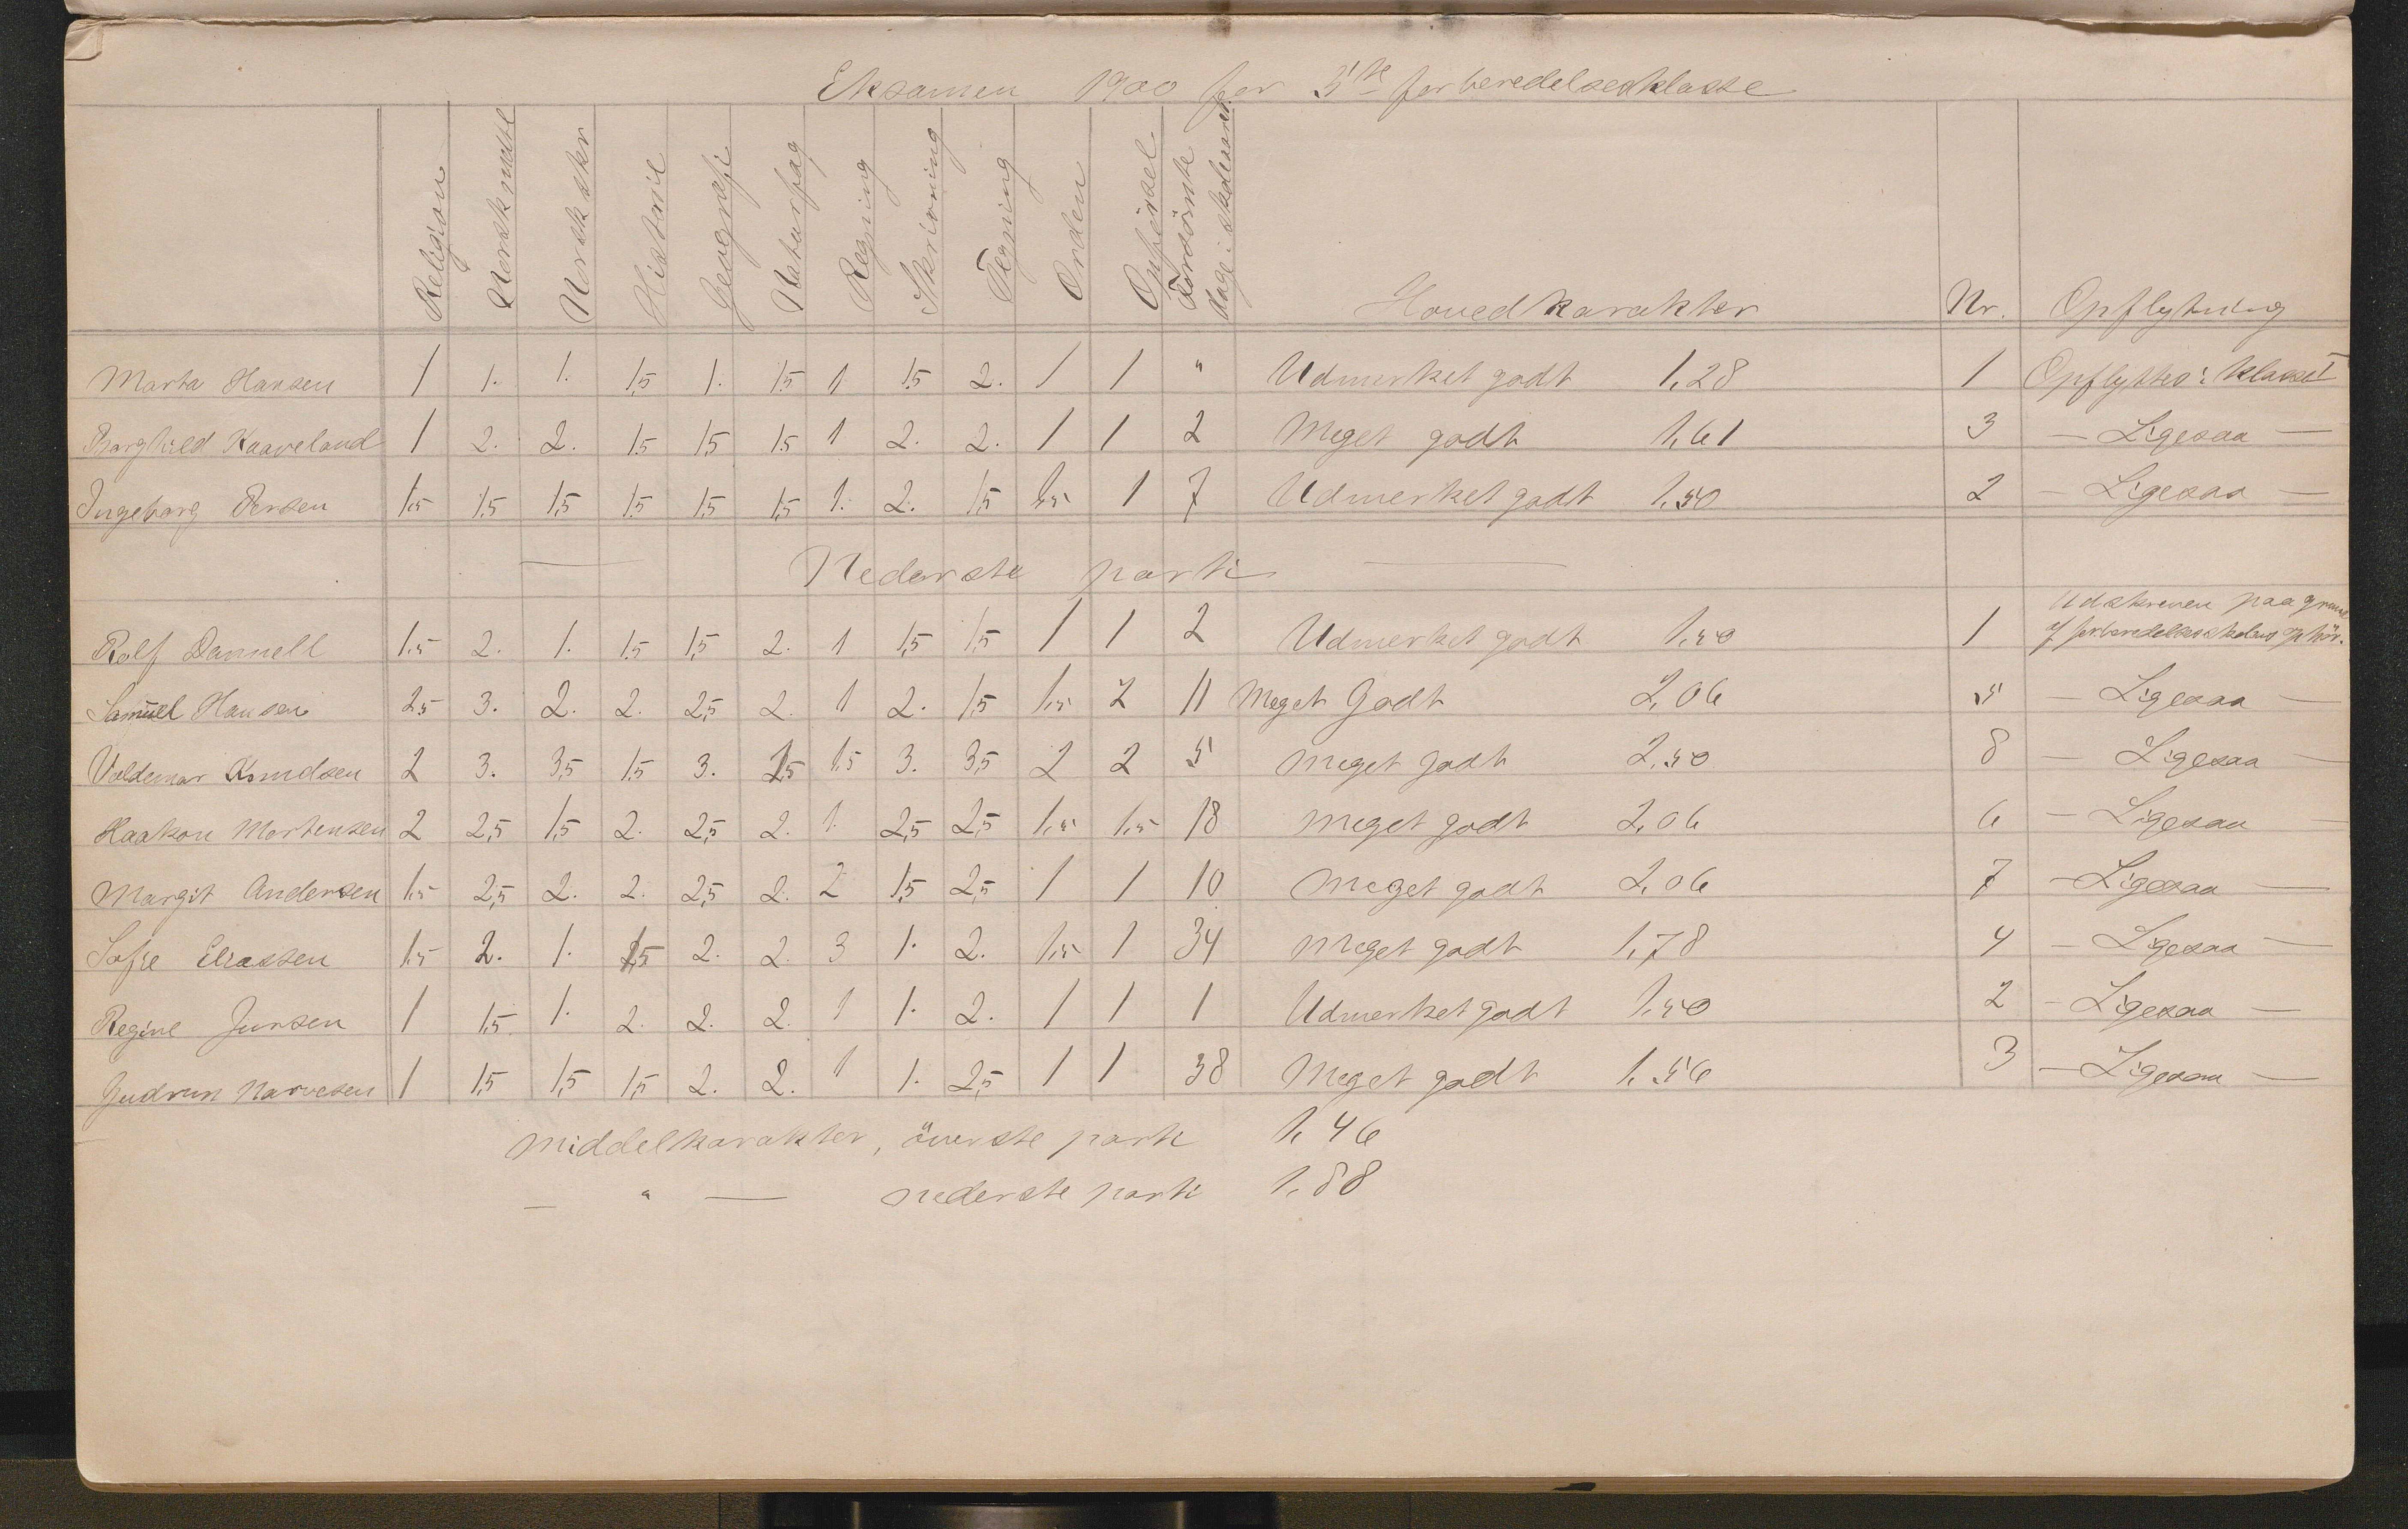 Eksamen 1900 for 5te forberedelsesklasse
Religion Norsk mdtl Norsk skr Historie Geografi Naturfag Regning Skrivning Tegning Orden Opførsel Forsömte dage i skoleaaret Hovedkarakter Nr. Opflytning
Marta Hansen 1 1. 1. 1,5 1. 1,5 1 1,5 2. 1 1 " Udmerket godt 1,28 1 Opflyttes i klasse I
Borghild Kaaveland 1 2. 2. 1,5 1,5 1,5 1 2. 2. 1 1 2 Meget godt 1,61 3 — Ligesaa —
Ingeborg Persen 1,5 1,5 1,5 1,5 1,5 1,5 1. 2. 1,5 1,5 1 7 Udmerket godt 1,50 2 — Ligesaa —
— Nederste parti —
Rolf Dannell 1,5 2. 1. 1,5 1,5 2. 1 1,5 1,5 1 1 2 Udmerket godt 1,50 1 Udskreven paa grund
af forberedelsesskolens ophör.
Samuel Hansen 2,5 3. 2. 2. 2,5 2. 1 2. 1,5 1,5 2 11 Meget Godt 2,06 5 — Ligesaa —
Valdemar Knudsen 2 3. 3,5 1,5 3. 1,5 1,5 3. 3,5 2 2 5 Meget godt 2,50 8 — Ligesaa —
Haakon Mortensen 2 2,5 1,5 2. 2,5 2. 1. 2,5 2,5 1,5 1,5 18 Meget godt 2,06 6 — Ligesaa —
Margit Andersen 1,5 2,5 2. 2. 2,5 2. 2 1,5 2,5 1 1 10 Meget godt 2,06 7 — Ligesaa —
Sofie Eliassen 1,5 2. 1. 1,5 2. 2. 3 1. 2. 1,5 1 34 Meget godt 1,78 4 — Ligesaa —
Regine Jensen 1 1,5 1. 2. 2. 2. 1 1. 2. 1 1 1 Udmerket godt 1,50 2 — Ligesaa —
Gudrun Narvesen 1 1,5 1,5 1,5 2. 2. 1 1. 2,5 1 1 38 Meget godt 1,56 3 — Ligesaa —
Middelkarakter, överste parti 1,46
— " — nederste parti 1,88